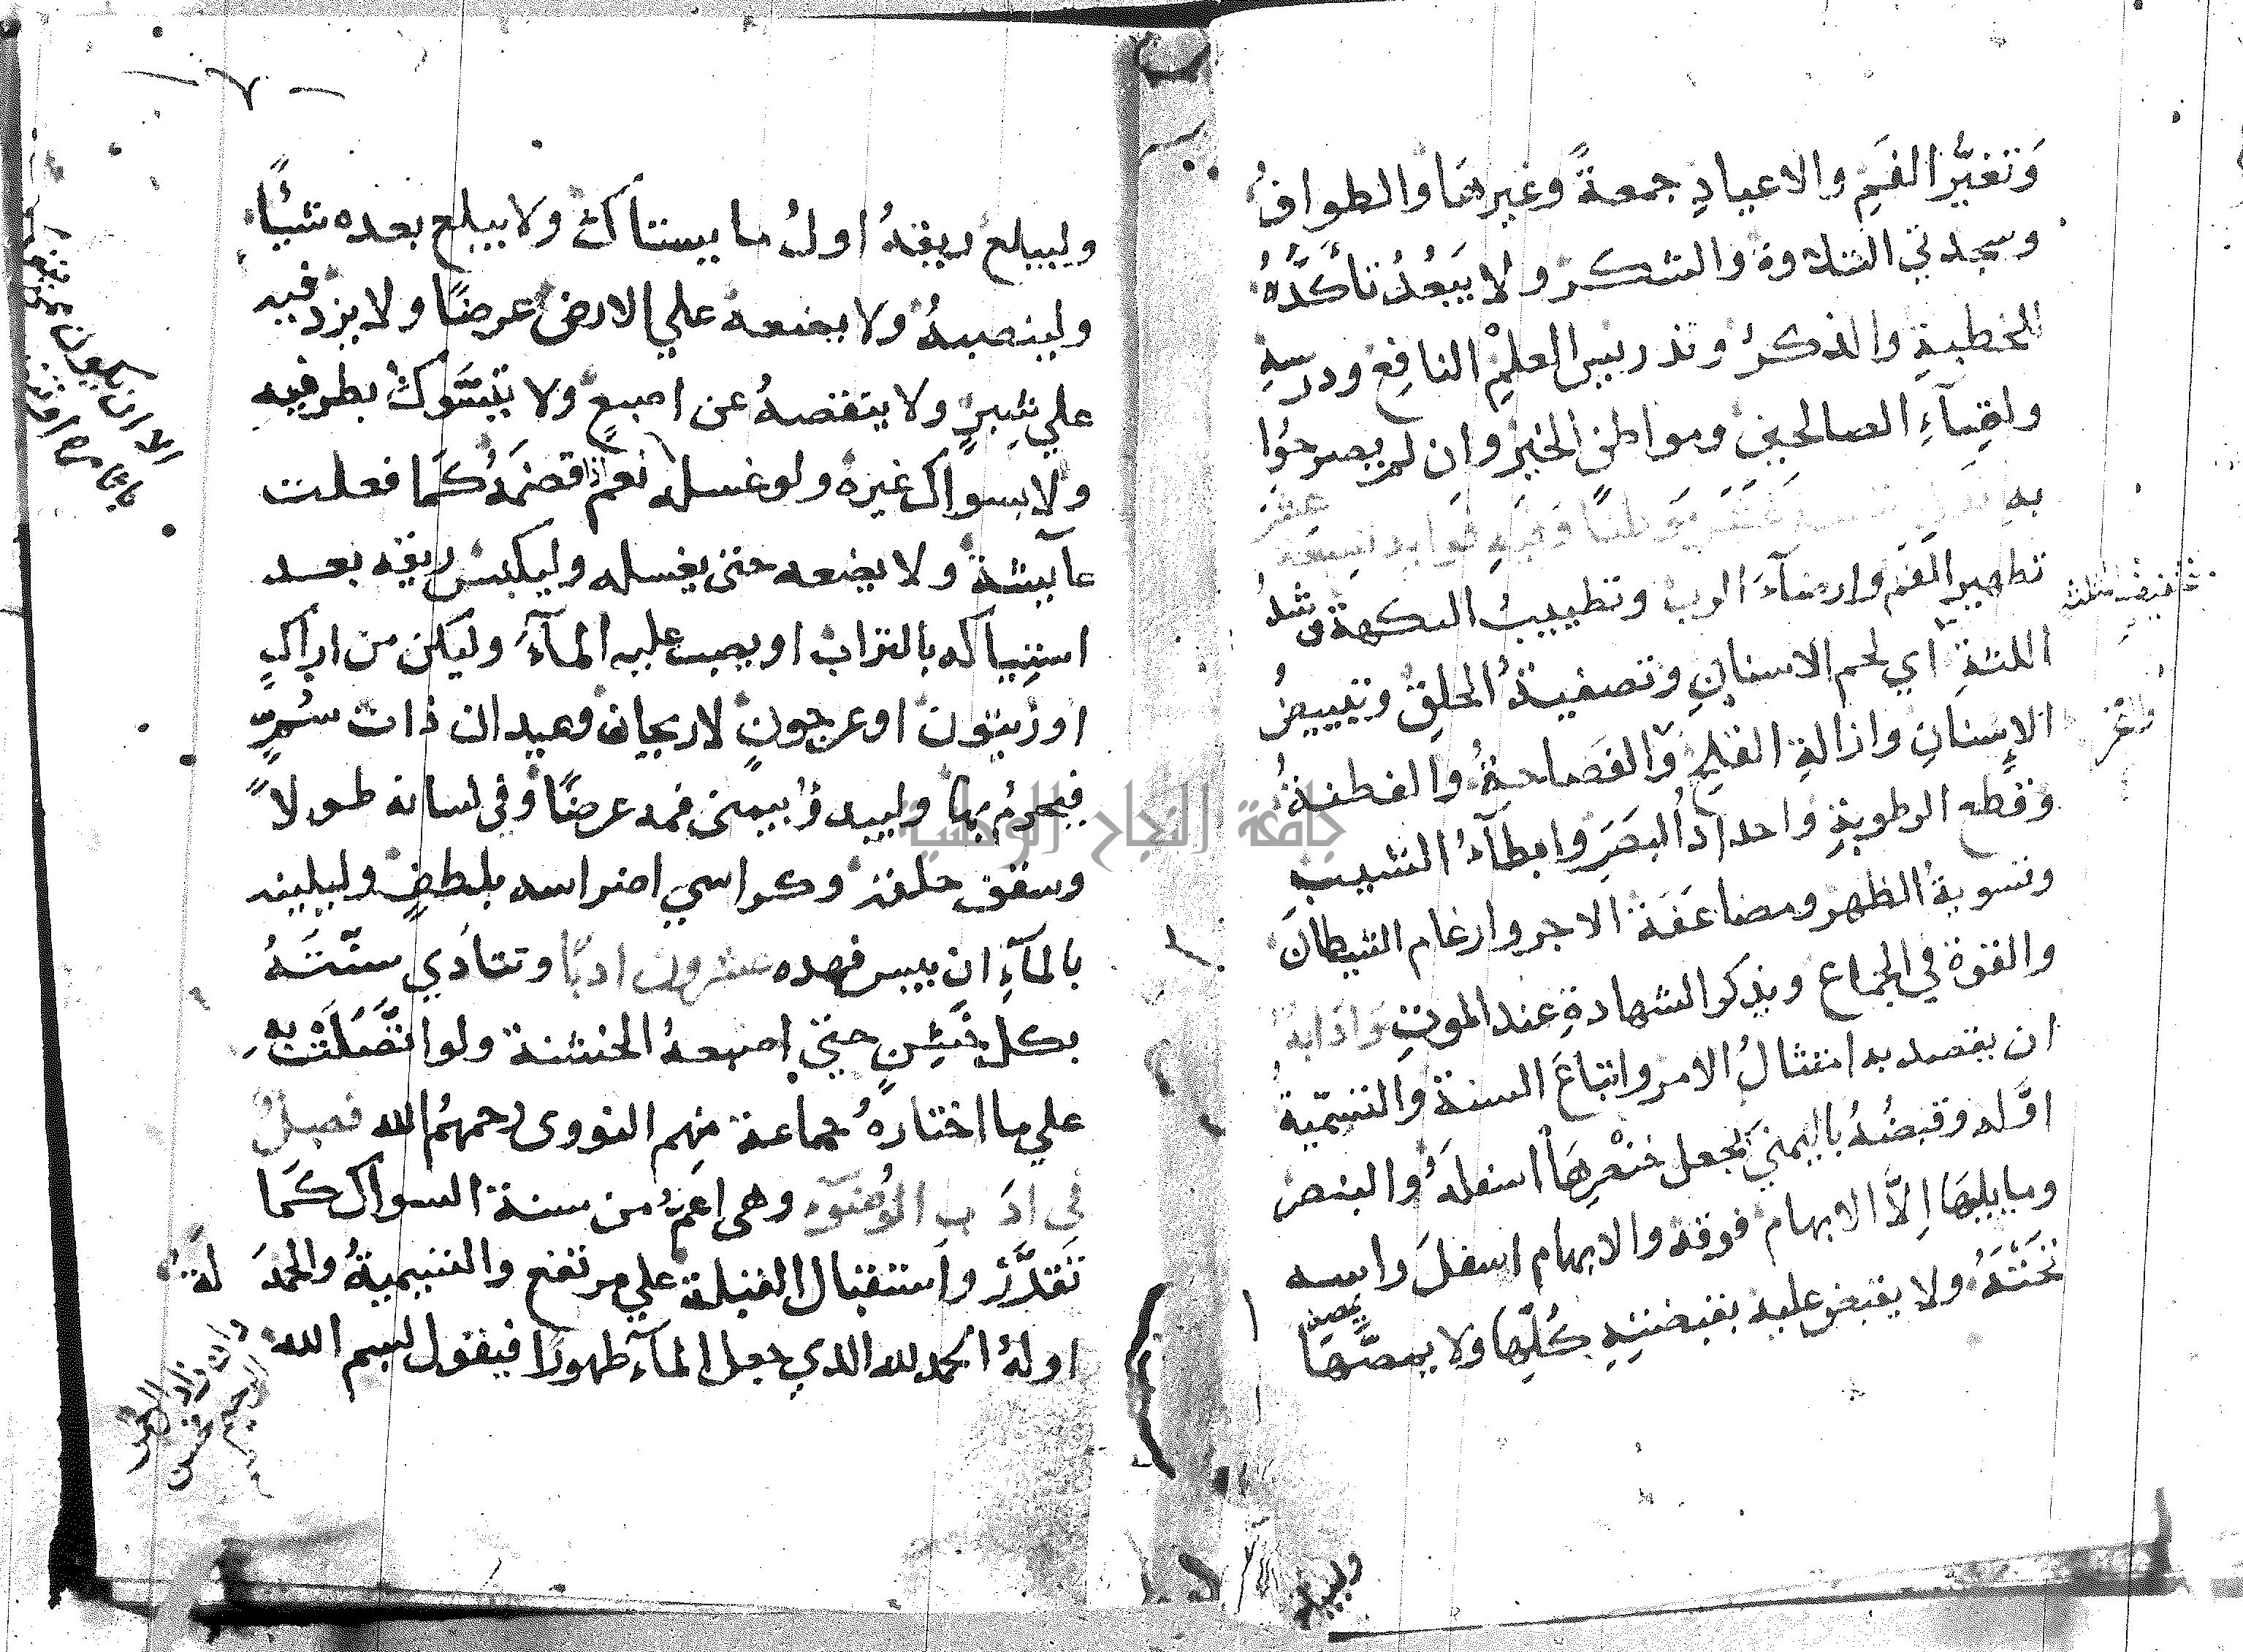 وَتغيُّر الفَمِ والاعيادِ جمعةً وغيرهَا والطوافُ
وسجدتي التلاوة والشكر ولا يَبعُدُ تأكُّدُهُ
للخطبةِ والذكر وتدريس العلمْ النافِع ودرسهِ
ولقآءِ الصالحين ومواطن الخير وان لم يصرحوا
به عشر مَوطنًا وَفيهِ فوايد تسعة عشر
تطهير الفم وارضآء الرب وتطييبُ النكهة وشدُ
اللثةِ اي لحم الاسنانِ وتصفيةُ الحلقِ وتبييضُ
الاسنانِ وازالةِ القلحِ والفَصاحةُ والفطنةُ
وقطع الرطوبةِ واحدادُ البَصَرِ وابطآءُ الشيبِ
وتسويةُ الظهر ومضاعَفَة الاجر وارغام الشيطانَ
والقوة في الجماع ويذكر الشهادةِ عند الموتِ وَادَابهُ
ان يقصد به امتثالُ الامر واتباعَ السنة والتسمّيةُ
اوَّله وقبضُهُ باليمنيَ يجعل خنْصِرهَا اسفلهُ والبنصر
وما يليهَا اِلَّا الابهام فوقهُ والابهام اسفلَ راسه
تحَتَهُ ولا يقبض عليه بقبضتِهِ كُلِّها ولا يمصَّهَا
وليبلع
- ٧ -
وليبلع ريقهُ اولُ ما يستاك ولا يبلع بعده شيئًا
ولينصبهُ ولا يضعه علي الارض عرضًا ولا يزد فيه
علي شبرٍ ولا ينقصهُ عن اصبعٍ ولا يتسَّوك بطرفيه
ولا بسواك غيره ولو غسله نعم اذا قصَمَهُ كمَا فعلت
عآيشة ولا يضعه حتى يغسله وليكبس ريقه بعد
استياكه بالتراب او يصب عليه المآء وليكن من اراكٍ
او زيتون او عرجونٍ لا ريحان وعيدان ذات سُمٍّ
فيحرمُ بها وليبدؤ بيمنى فمه عرضًا وفي لسانه طولاً
وسقف حلقه وكراسي اضراسه بلطفٍ وليلينه
بالمآءِ ان يبس فهذه عشرون ادبًا وتتادَي سنّتَهُ
بكل خشِنٍ حتى اصبعهُ الخشنة ولو اتَّصَلَتْ به
علي ما اختارهُ جماعة منهم النووى رحمهُم الله فصل
في ادَاب الوُضوء وهى اعمُّ من سنة السواك كمَا
تَقدَّرَ واستقبال القبلة علي مرتفع والتسميةُ والحمدَ لهُ
اولهُ الحمد لله الذي جعل المآءَ طهورًا فيقول بسم الله
وان زاد الرحمن
الرحيم فحسن